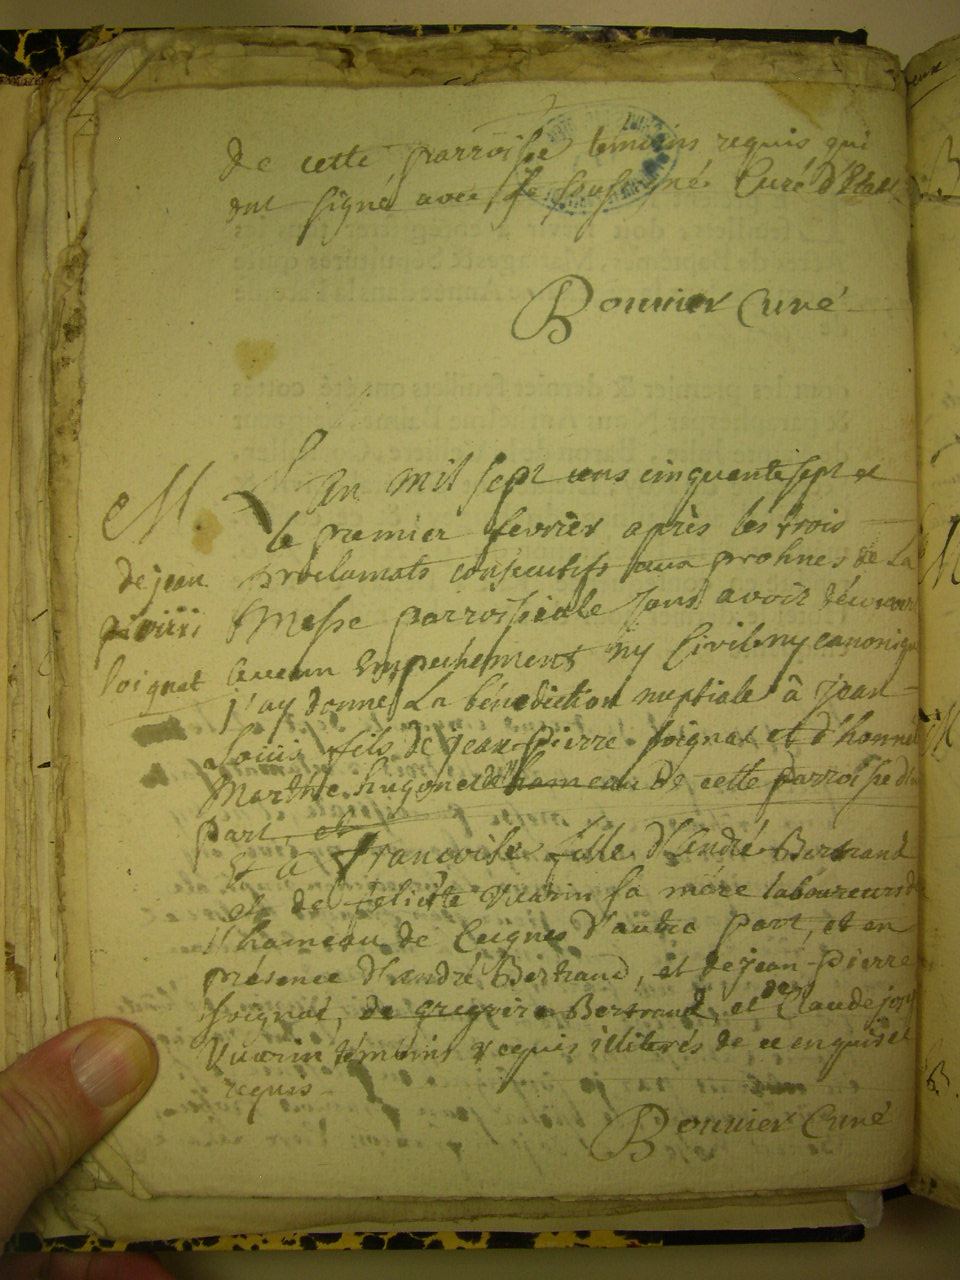 de cette parroisse temoins requis qui
ont signé avec Je soussigné Curé d'
Bonnier Curé
L'an mil sept cens cinquante sept et
le premier fevrier après les trois
proclamats consecutifs aux prohnes de La
Messe parroissiale sans avoir découvert
aucun Empechement ny Civil ny canonique
j'ay donné La bénediction nuptiale à jean
Loüis fils de jean-pierre soignat et d'honnete
Marthe hugonet hameau de cette parroisse d'une
part,
Et a Francoise fille d'André Bertrand
et de Vuarin sa mère laboureurs
hameau de Ceignes d'autre part, et en
présence d'andré Bertrand, et de jean-pierre
soignat, de gregoire Bertrand, et de Claude jos
Vuarin témoins requis illiterés de ce enquis et
requis
Bonnier Curé
M
de jean
soignat